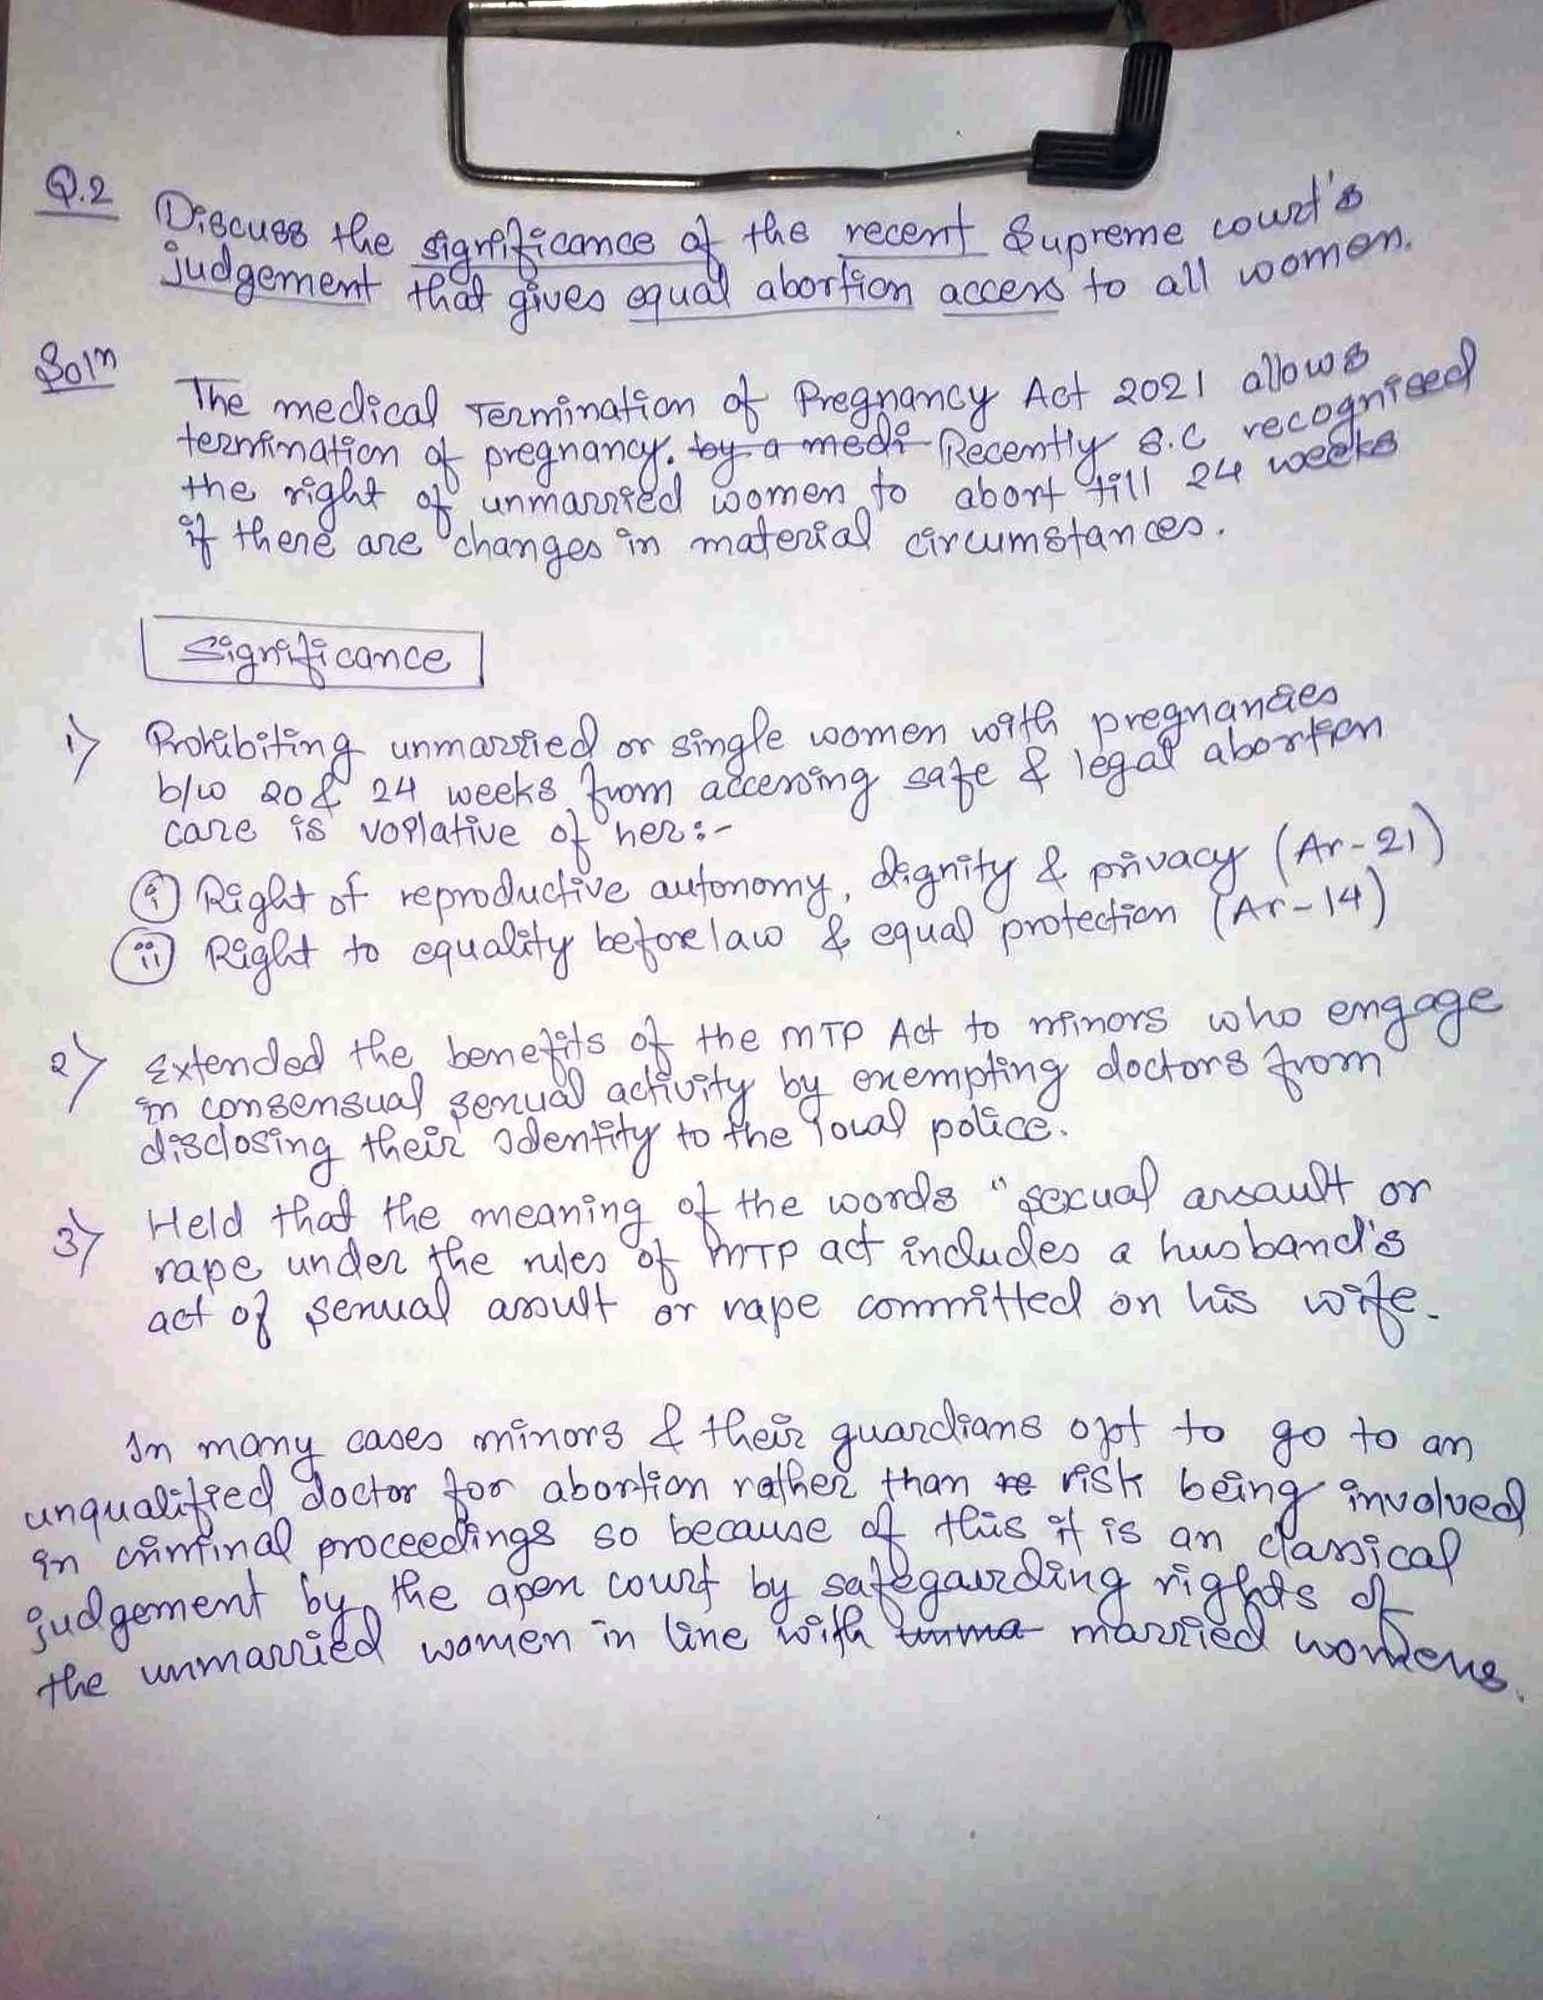 Q.2 Discuss the significance of the recent Supreme court's
judgement that gives equal abortion access to all women.
Soln
The medical Termination of Pregnancy Act 2021 allows
termination of pregnancy. by a medi Recently S.C recogniced
the right of unmarried women to abort till 24 weeks
if there are changes in material circumstances.
Significance
1) Prohibiting unmarried or single women with pregnancies
b/w 20 & 24 weeks from accessing safe & legal abortion
care is voilative of her:-
(i) Right of reproductive autonomy, dignity & privacy (Ar-21)
(ii) Right to equality before law & equal protection (Ar-14)
2) Extended the benefits of the MTP Act to minors who engage
in consensual sexual activity by exempting doctors from
disclosing their identity to the local police.
3) Held that the meaning of the words "sexual assault or
rape under the rules of MTP act includes a husband's
act of sexual assult or rape committed on his wife.
In many cases minors & their guardians opt to go to an
unqualified doctor for abortion rather than re risk being involved
in criminal proceedings so because of this it is an classical
judgement by the apen court by safegaurding rights of
the unmarried women in line with unma married womens.